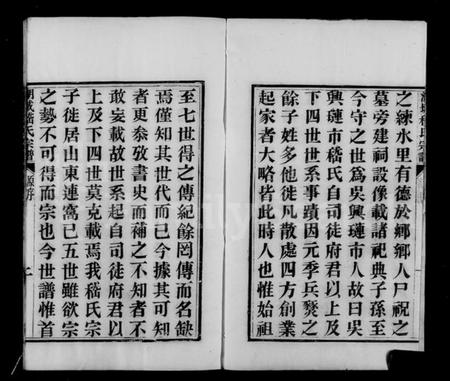 之練水里有德於鄉鄉人尸祝之
墓旁建祠設像載諸祀典子孫至
今守之世爲吳興璉市人故曰吳
興璉市嵇氏自司徒府君以上及
下四世世系事蹟因元季兵燹之
餘子姓多他徙凡散處四方創業
起家者大略皆此時人也惟始祖
至七世得之傳紀餘罔傳而名缺
焉僅知其世代而已今據其可知
者更叅攷書史而補之不知者不
敢妄載故世系起自司徒府君以
上及下四世莫克載焉我嵇氏宗
子徙居山東連窩已五世雖欲宗
之勢不可得而宗也今世譜惟首
嵇氏宗譜
源序
二